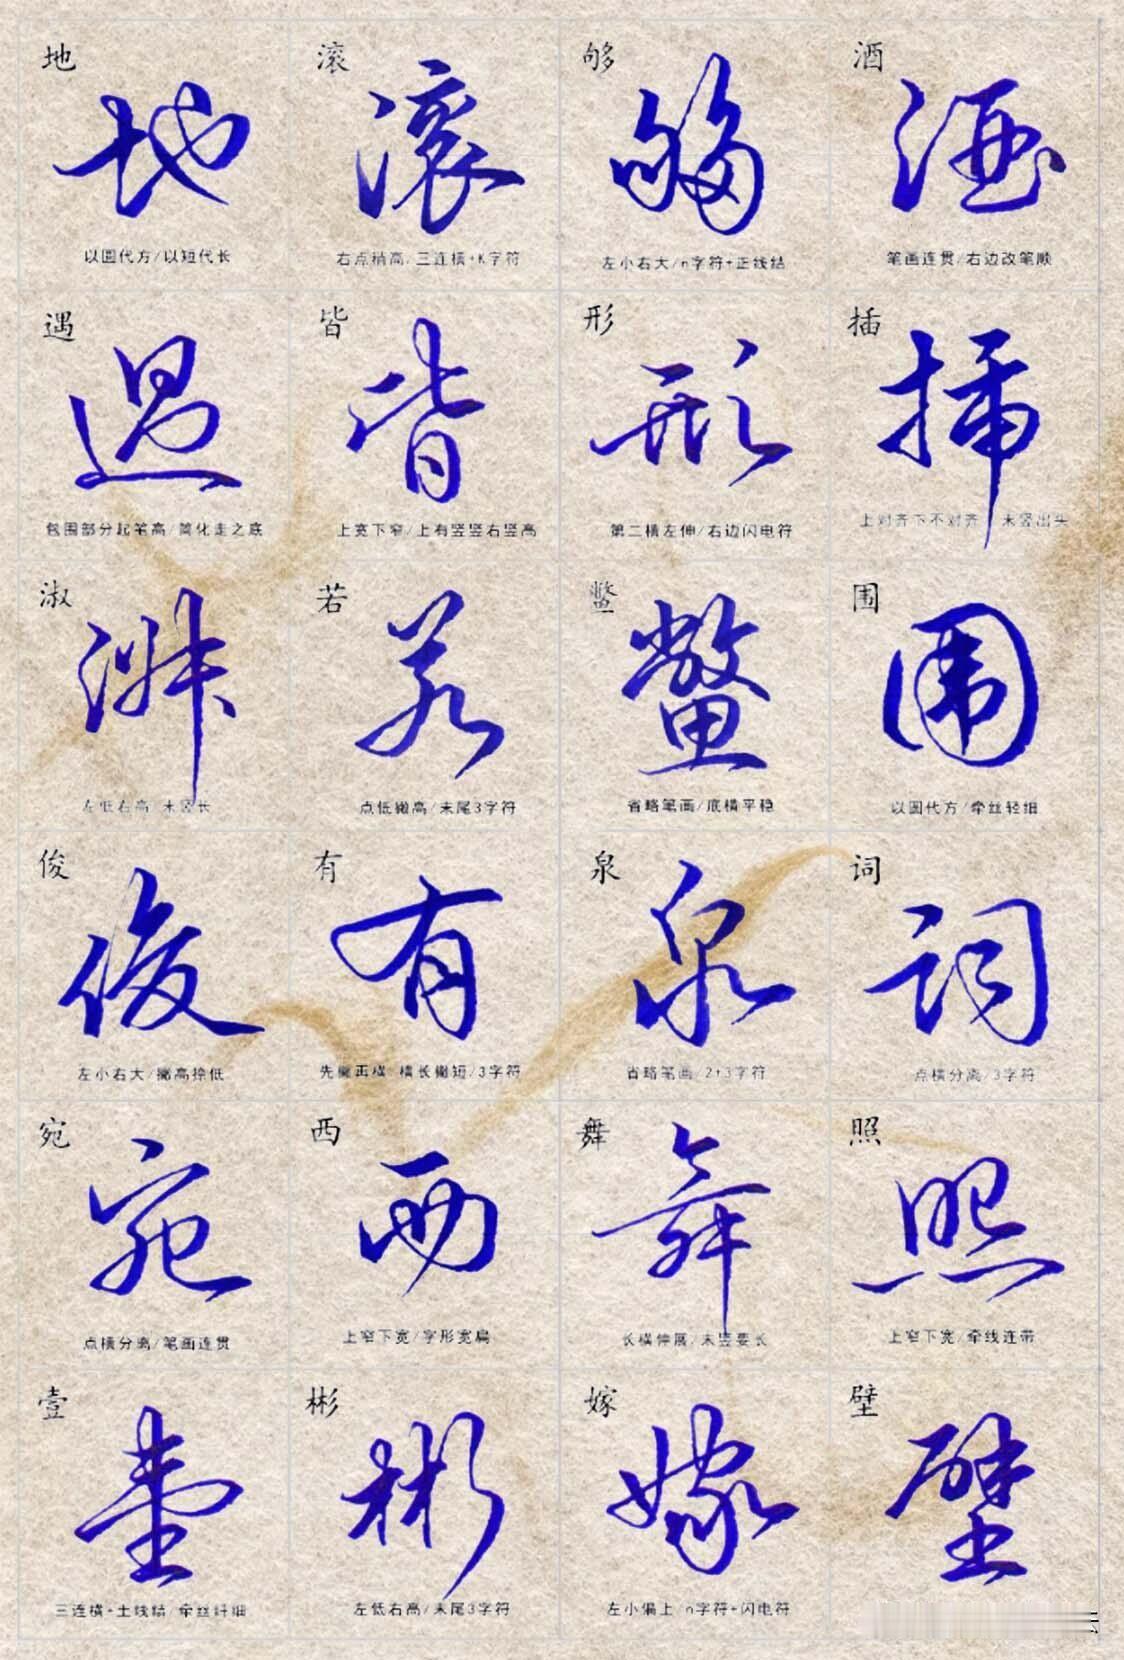 地 滚 够 酒
地 滚 够 酒
以圆代方/以短代长 右点稍高/三连横+K字符 左小右大/n字符+正线结 笔画连贯/右边改笔顺
遇 皆 形 插
遇 皆 形 插
包围部分起笔高/简化走之底 上宽下窄/上有竖竖右竖高 第二横左伸/右边闪电符 上对齐下不对齐/末竖出头
淑 若 鳖 围
淑 若 鳖 围
左低右高/末竖长 点低撇高/末尾3字符 省略笔画/底横平稳 以圆代方/牵丝轻细
俊 有 泉 词
俊 有 泉 词
左小右大/撇高捺低 先撇再横/横长撇短/3字符 省略笔画/2+3字符 点横分离/3字符
宛 西 舞 照
宛 西 舞 照
点横分离/笔画连贯 上窄下宽/字形宽扁 长横伸展/末竖要长 上窄下宽/牵线连带
壹 彬 嫁 壁
壹 彬 嫁 壁
三连横+土线结/牵丝纤细 左低右高/末尾3字符 左小偏上/n字符+闪电符